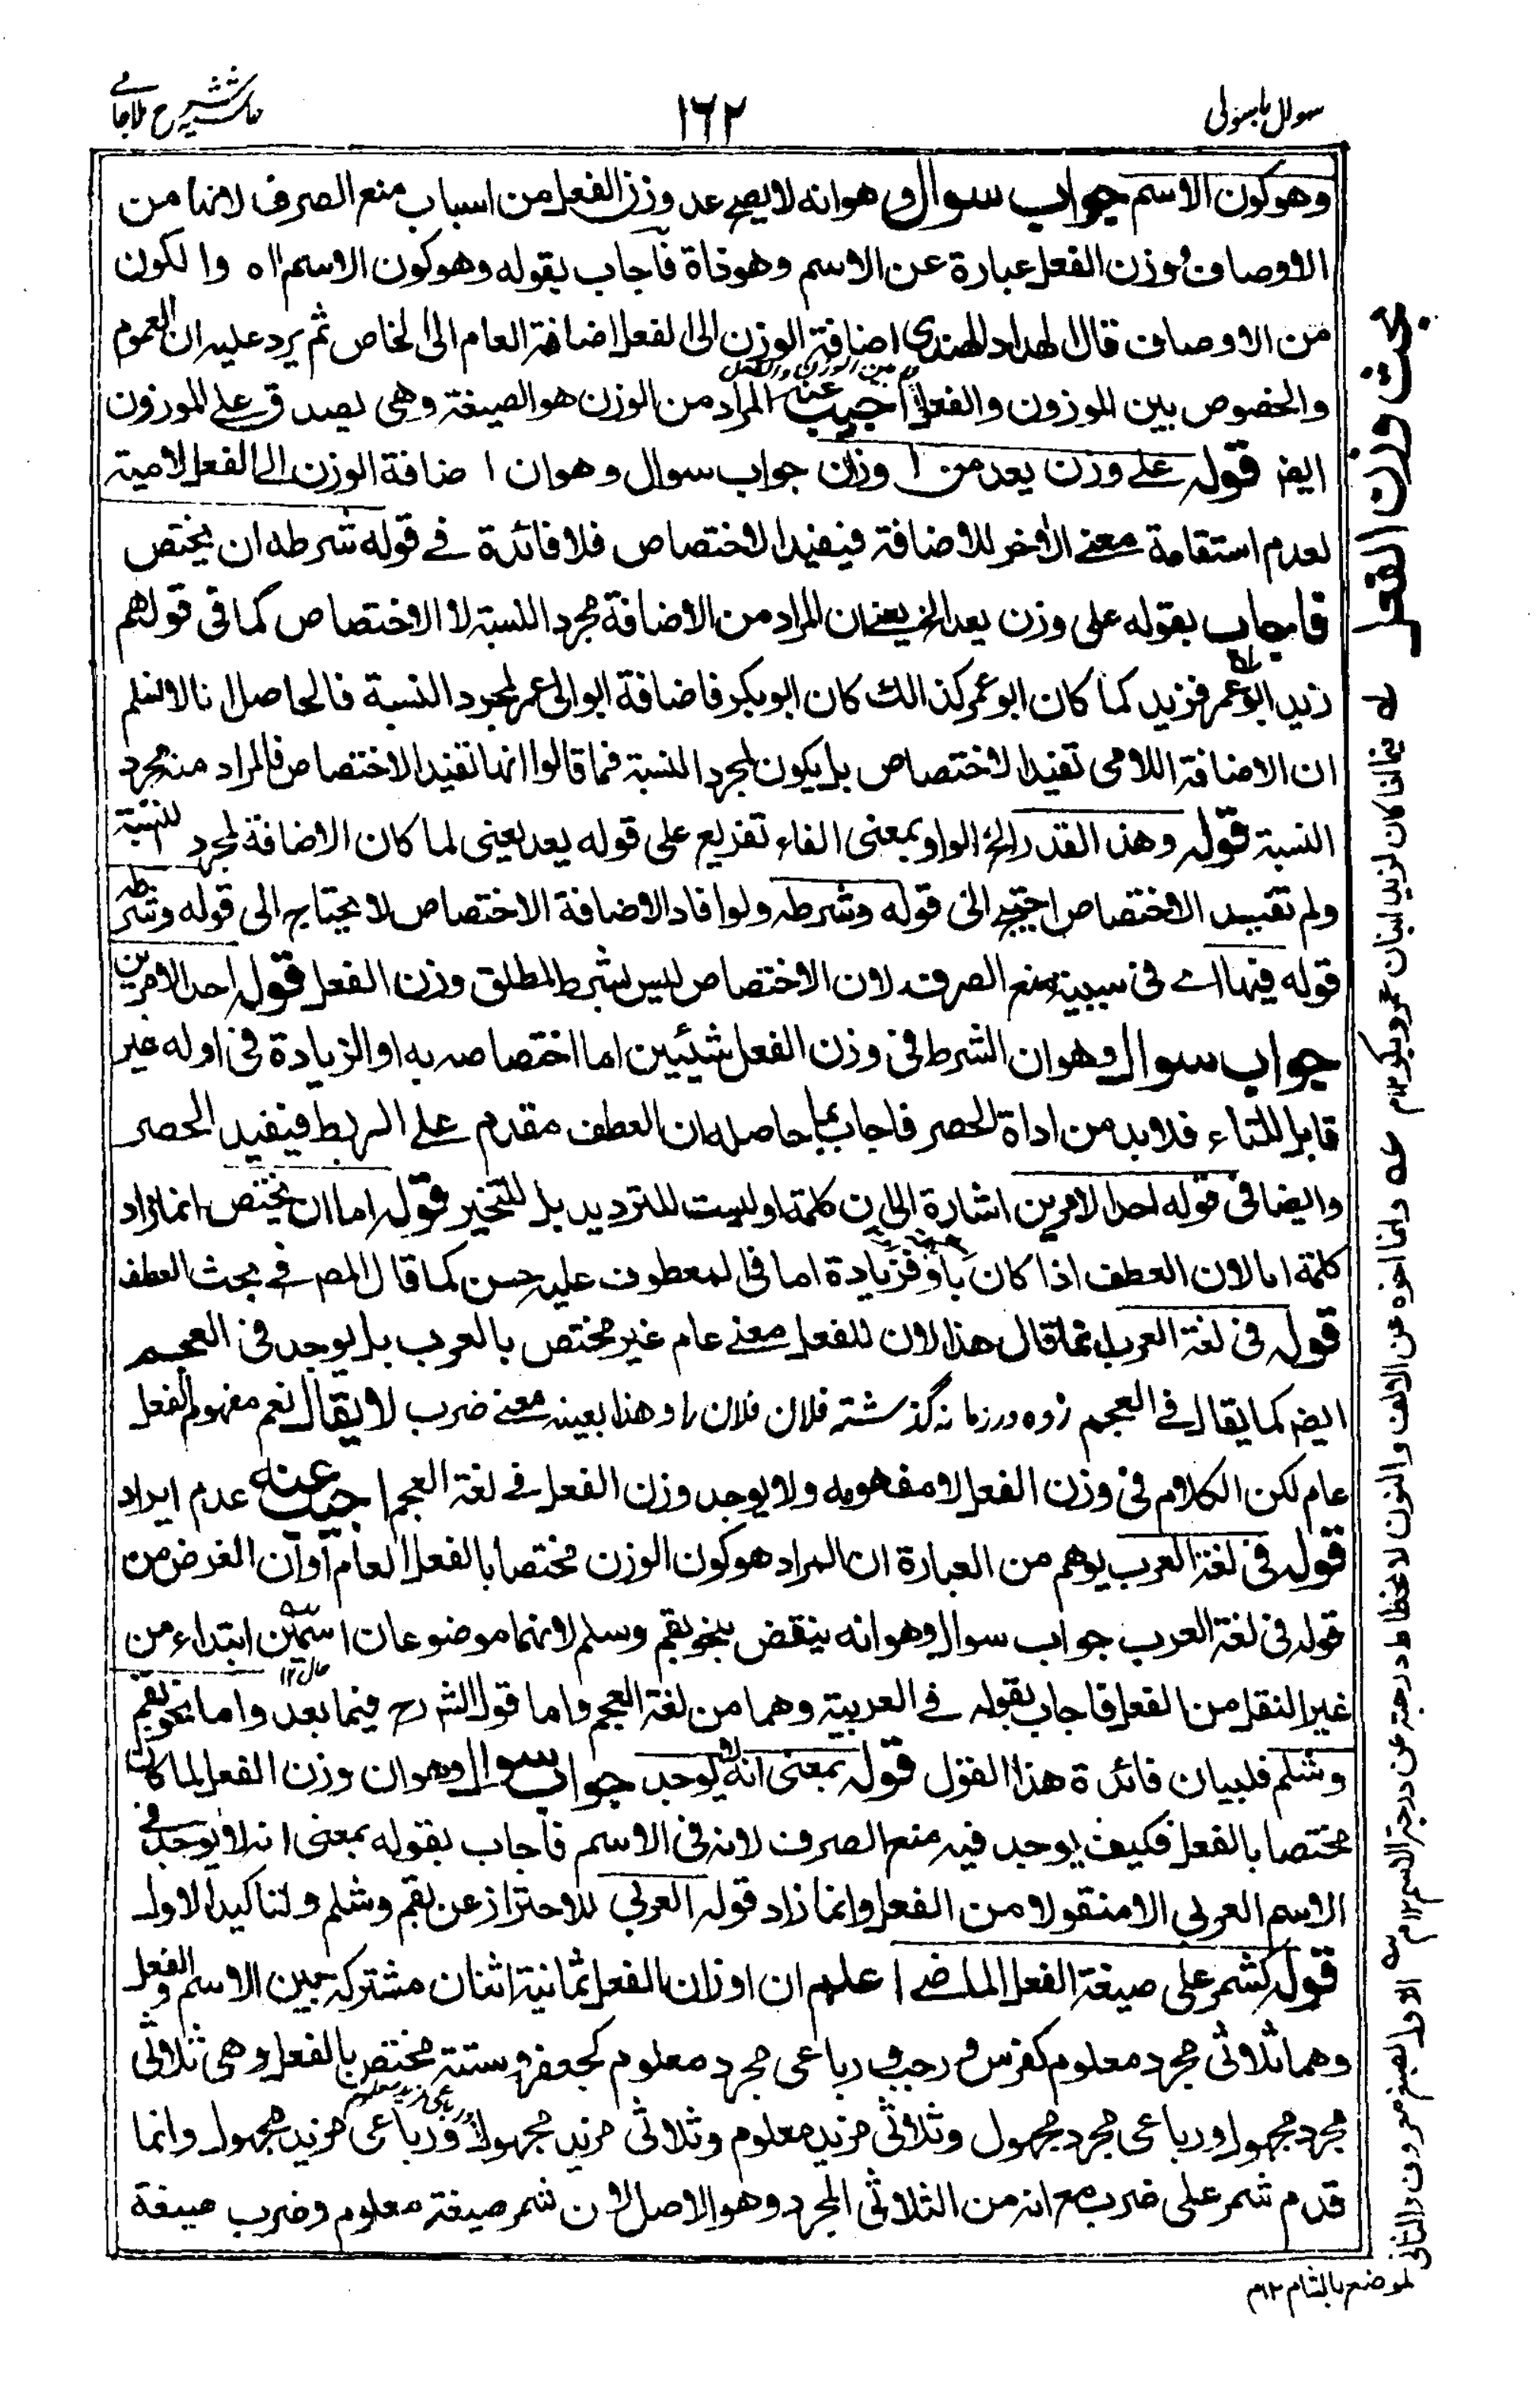 سوال باسولی
١٦٢
حاشیہ شرح ملا جامی
وهو كون الاسم جواب سوال وهو انه لا يصح عد وزن الفعل من اسباب منع الصرف لانها من
الاوصاف ووزن الفعل عبارة عن الاسم وهو ذاة فاجاب بقوله وهو كون الاسم اه والكون
من الاوصاف قال الهداد الهندي اضافة الوزن الى الفعل اضافة العام الى الخاص ثم يرد عليه ان العموم
والخصوص بين الموزون والفعل لا بين الوزن والفعل اجيب عنه المراد من الوزن هو الصيغة وهي يصدق على الموزون
ايضا قوله على وزن يعد من اوزان جواب سوال وهو ان اضافة الوزن الى الفعل لامية
لعدم استقامة معنى الاخر للاضافة فيفيد الاختصاص فلا فائدة في قوله شرطه ان يختص
فاجاب بقوله على وزن يعد الخ يعني ان المراد من الاضافة مجرد النسبة لا الاختصاص كما في قولهم
زيد ابو عمر فزيد كما كان ابو عمر كذالك كان ابو بكر فاضافة ابو الى عمر لمجرد النسبة فالحاصل انا لا نسلم
ان الاضافة اللامي تفيد الاختصاص بل يكون لمجرد النسبة فما قالوا انها تفيد الاختصاص فالمراد منه مجرد
النسبة قوله وهذا القدر الخ الواو بمعنى الفاء تفريع على قوله يعد يعنى لما كان الاضافة لمجرد النسبة
ولم تفيد الاختصاص احتيج الى قوله وشرطه ولو افاد الاضافة الاختصاص لا يحتاج الى قوله وشرطه
قوله فيها اے فى سببية منع الصرف لان الاختصاص ليس بشرط لمطلق وزن الفعل قوله احد الامرين
جواب سوال وهو ان الشرط فى وزن الفعل شيئين اما اختصاصه به او الزيادة فى اوله غير
قابل للتاء فلا بد من اداة الحصر فاجاب بما حاصله ان العطف مقدم على الربط فيفيد الحصر
وايضا فى قوله احد الامرين اشارة الى ان كلمة او ليست للترديد بل للتخير قوله اما ان يختص انما زاد
كلمة اما لان العطف اذا كان باو فزيادة اما فى المعطوف عليه حسن كما قال المص في بحث العطف
قوله فى لغة العرب انما قال هذا لان للفعل معنى عام غير مختص بالعرب بل يوجد فى العجم
ايضا كما يقال في العجم زده در زمانہ گذشتہ فلان فلان را وهذا بعينه معنى ضرب لا يقال نعم مفهوم الفعل
عام لكن الكلام فى وزن الفعل لا مفهومه ولا يوجد وزن الفعل في لغة العجم اجيب عنه عدم ايراد
قوله فى لغة العرب يوهم من العبارة ان المراد هو كون الوزن مختصا بالفعل العام او ان الغرض من
قوله فى لغة العرب جواب سوال وهو انه ينقض بنحو بقم وسلم لانهما موضوعان اسمين ابتداء من
غير النقل من الفعل فاجاب بقوله في العربية وهما من لغة العجم واما قول الشرح فيما بعد واما نحو بقم
وشلم فلبيان فائدة هذا القول قوله بمعنى انه لا يوجد جواب سوال وهو ان وزن الفعل لما كان
مختصا بالفعل فكيف يوجد فيه منع الصرف لانه فى الاسم فاجاب بقوله بمعنى انه لا يوجد فى
الاسم العربى الا منقولا من الفعل وانما زاد قوله العربي للاحتراز عن بقم وشلم ولتاكيد الاول
قوله كشمر على صيغة الفعل الماضي اعلم ان اوزان الفعل ثمانية اثنان مشتركة بين الاسم والفعل
وهما ثلاثى مجرد معلوم كفرس ورجب ورباعى مجرد معلوم كجعفر وستة مختص بالفعل وهى ثلاثى
مجرد مجهول ورباعى مجرد مجهول وثلاثى مزيد معلوم وثلاثى مزيد مجهول ورباعى مزيد معلوم ورباعى مزيد مجهول وانما
قدم شمر على ضرب مع انه من الثلاثى المجرد وهو الاصل لان شمر صيغة معلوم وضرب صيغة
بحث وزن الفعل
لموضع بالشام ١٢م